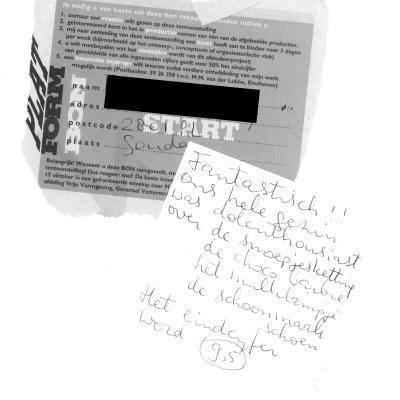 Ik nodig u van harte uit deze bon retour te zenden indien u
1. zomaar een reactie wilt geven op deze tentoonstelling
2. geïnteresseerd bent in het in productie nemen van één van de afgebeelde producten.
3. mij naar aanleiding van deze tentoonstelling een baan heeft aan te bieden voor 3 dagen
per week (bijvoorbeeld op het ontwerp-, conceptuele of organisatorische vlak)
4. u wilt meebepalen wat het eindcijfer wordt van dit afstudeerproject;
een gemiddelde van alle ingezonden cijfers geeft voor 50% het eindcijfer
5. een financiële bijdrage wilt leveren zodat verdere ontwikkeling van mijn werk
mogelijk wordt (Postbanknr. 59 26 258 t.n.v. M.M. van der Lubbe, Eindhoven)
PLAT
FORM
BON
START
naam
adres
postcode 2801
plaats Gouda
Belangrijk! Wanneer u deze BON terugzendt,
tentoonstelling! Dus reageer snel! De beste
15 oktober in een gefrankeerde envelop naar
afdeling Vrije Vormgeving, Generaal
Fantastisch!!
ons hele gezin
was dolenthousiast
over de snoepjesketting
de choco barbie
het multilampje
de schoonmaak
schoen
Het eindcijfer
word 9,5